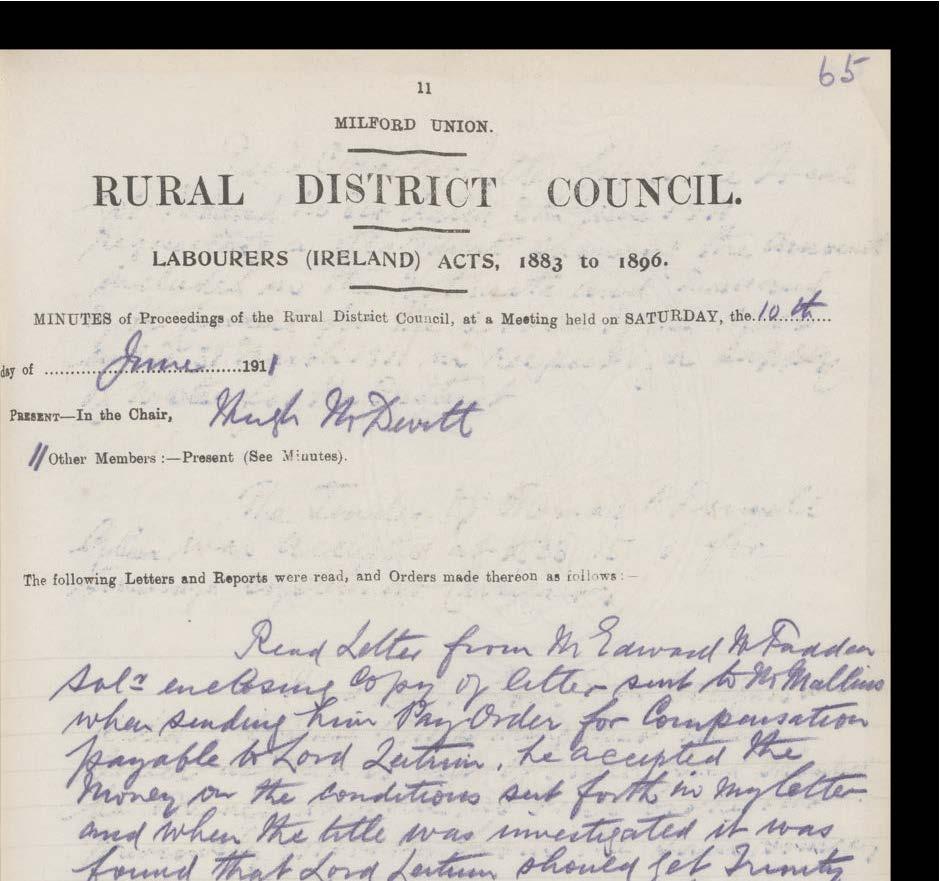 65
11
MILFORD UNION.
RURAL DISTRICT COUNCIL.
LABOURERS (IRELAND) ACTS, 1883 to 1896.
MINUTES of Proceedings of the Rural District Council, at a Meeting held on SATURDAY, the 10th
day of June 1911
PRESENT—In the Chair, Hugh McDevitt
Other Members :—Present (See Minutes).
The following Letters and Reports were read, and Orders made thereon as follows :—
Read Letter from Mr Edward McFadden
Solr enclosing Copy of letter sent to Mr Mallins
when sending him Pay Order for Compensation
payable to Lord Leitrim, he accepted the
Money on the conditions set forth in my letter
and when the title was investigated it was
found that Lord Leitrim should get Trinity